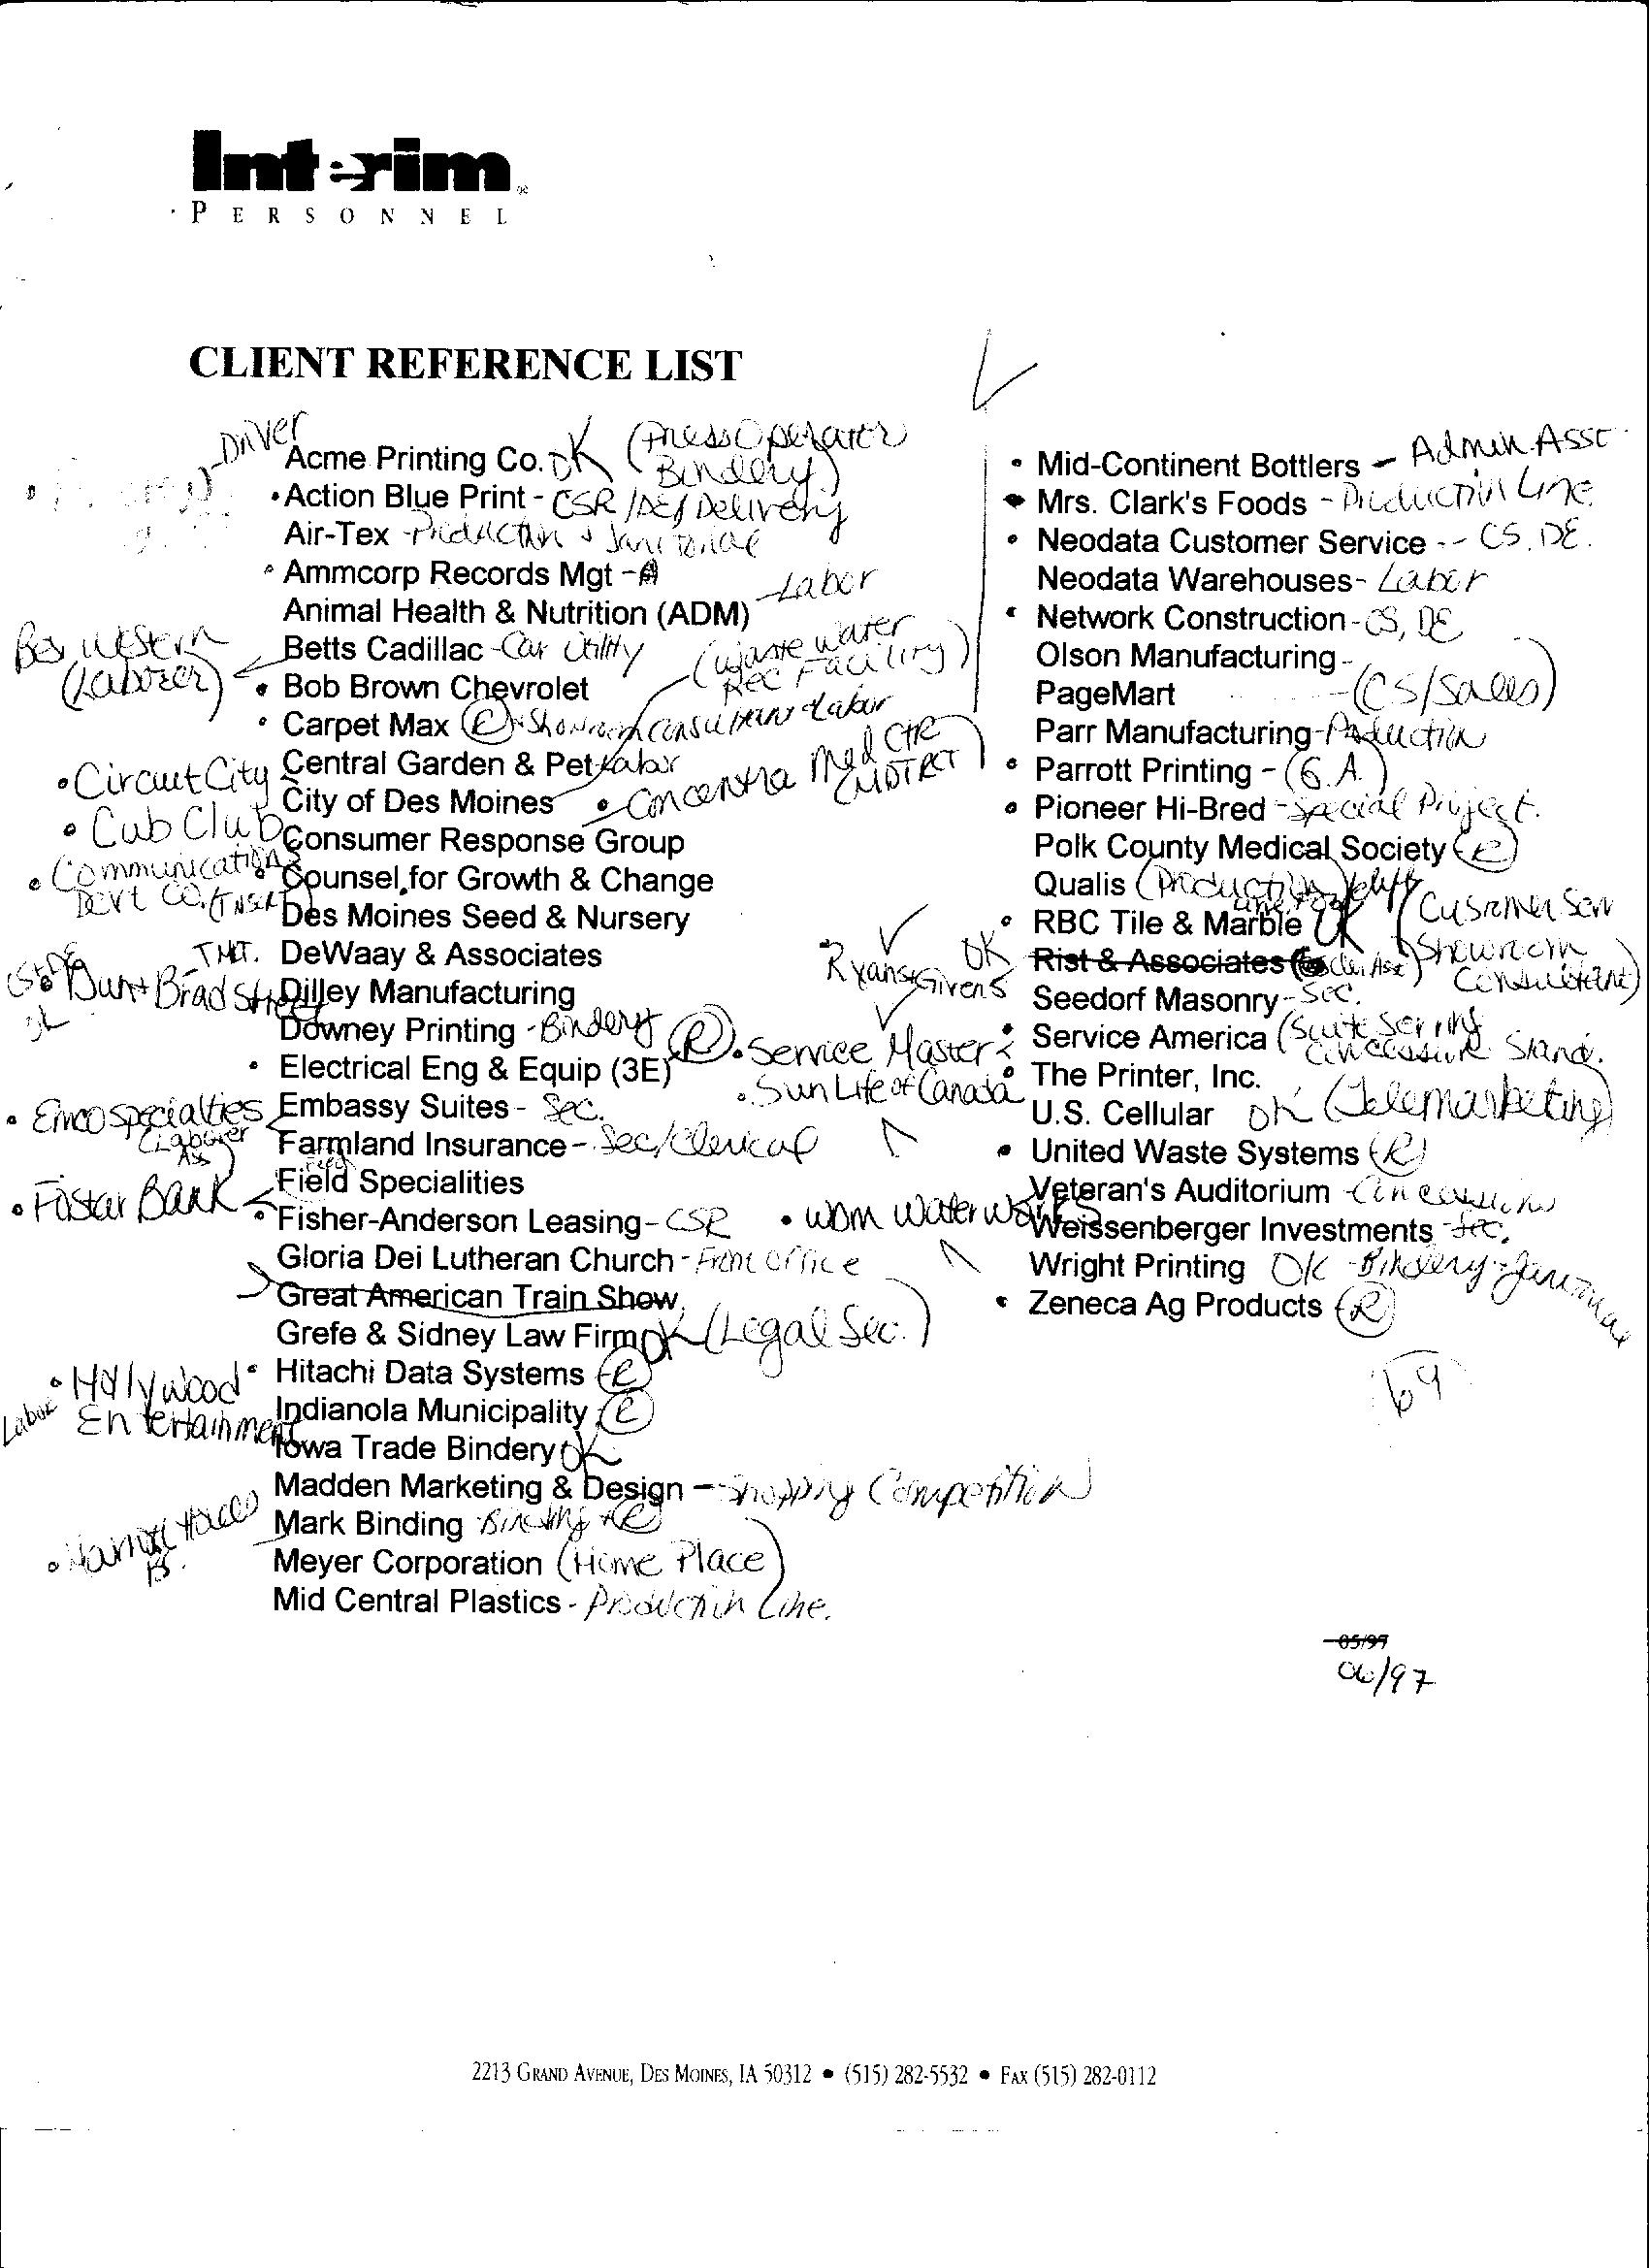 Interim
PERSONNEL
CLIENT REFERENCE LIST
Driver
Acme Printing Co. OK (Press Operator Bindery)
• Action Blue Print - CSR/DE/Delivery
Air-Tex - Production & Janitorial
• Ammcorp Records Mgt -
Animal Health & Nutrition (ADM) - Labor
Betts Cadillac - Car Utility
Best Western (Laborer)
• Bob Brown Chevrolet
• Carpet Max (R) - Showroom Consultant & Labor
Central Garden & Pet - Labor
• Circuit City
City of Des Moines (Waste Water Rec Facility)
• Concentra Med CTR
• Cub Club
Consumer Response Group
• Communication Devt Co. (Insert)
Counsel for Growth & Change
Des Moines Seed & Nursery
TMT. DeWaay & Associates
Dun & Brad Street
Dilley Manufacturing
Downey Printing - Bindery
• Electrical Eng & Equip (3E) (R)
Embassy Suites - Sec.
• Emco Specialties
Farmland Insurance - Sec/Clerical
Field Specialities
• Fistar Bank
• Fisher-Anderson Leasing - CSR
Gloria Dei Lutheran Church - Front Office
Great American Train Show
Grefe & Sidney Law Firm OK (Legal Sec.)
• Hitachi Data Systems (R)
• Hollywood Entertainment
Labor
Indianola Municipality (R)
Iowa Trade Bindery OK
Madden Marketing & Design - Shopping Competition
Mark Binding - Binding + (R)
Meyer Corporation (Home Place)
Mid Central Plastics - Production Line.
• Mid-Continent Bottlers - Admin Asst
• Mrs. Clark's Foods - Production Line
• Neodata Customer Service -- CS, DE.
Neodata Warehouses - Labor
• Network Construction - CS, DE
Olson Manufacturing -
PageMart - (CS/Sales)
Parr Manufacturing - Production
• Parrott Printing - (G.A.)
• Pioneer Hi-Bred - Special Project.
Polk County Medical Society (R)
Qualis (Production line)
• RBC Tile & Marble OK (Customer Serv Showroom Consultant)
Ryans & Givens OK
Rist & Associates
Seedorf Masonry - Sec.
• Service Master
• Service America (Suite Serving Concession Stand.
• Sun Life of Canada
• The Printer, Inc.
U.S. Cellular OK (Telemarketing)
• United Waste Systems (R)
Veteran's Auditorium - Concessions
• WDM Water Works
Weissenberger Investments - Sec.
Wright Printing OK - Bindery - Janitorial
• Zeneca Ag Products (R)
69
05/97
06/97
2213 GRAND AVENUE, DES MOINES, IA 50312 • (515) 282-5532 • FAX (515) 282-0112